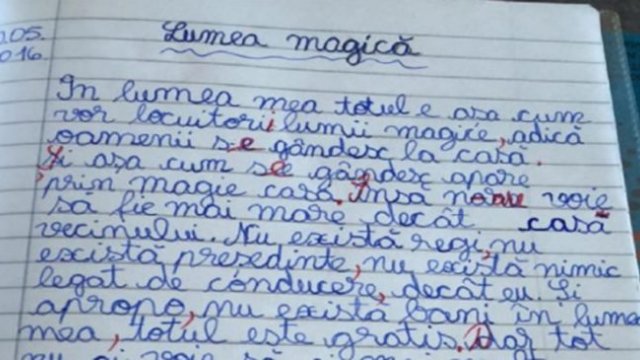 .05.
016
Lumea magică
In lumea mea totul e asa cum
vor locuitorii lumii magice, adică
oamenii se gândesc la casă.
Și asa cum se gândesc apare
prim magie casă. Insa nu au voie
să fie mai mare decât casă
vecinului. Nu există regi, nu
există presedinte, nu există nimic
legat de conducere, decât eu. Si
apropo, nu exista bani în lumea
mea, totul este gratis. Dar tot
nu ai voie să